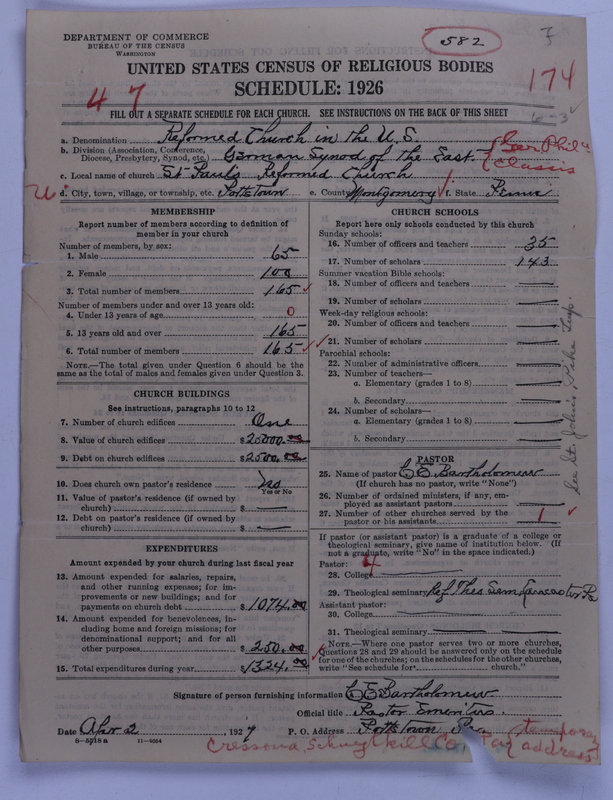 DEPARTMENT OF COMMERCE
BUREAU OF THE CENSUS
WASHINGTON
582
7
174
UNITED STATES CENSUS OF RELIGIOUS BODIES
SCHEDULE: 1926
4 7
6-3
FILL OUT A SEPARATE SCHEDULE FOR EACH CHURCH. SEE INSTRUCTIONS ON THE BACK OF THIS SHEET
a. Denomination Reformed Church in the U.S.
b. Division (Association, Conference, Diocese, Presbytery, Synod, etc.) German Synod of the East. Phila Classis
c. Local name of church St. Pauls Reformed Church
d. City, town, village, or township, etc. Pottstown e. County Montgomery f. State Penna
MEMBERSHIP
Report number of members according to definition of member in your church
Number of members, by sex:
1. Male 65
2. Female 100
3. Total number of members 165
Number of members under and over 13 years old:
4. Under 13 years of age 0
5. 13 years old and over 165
6. Total number of members 165
NOTE.—The total given under Question 6 should be the same as the total of males and females given under Question 3.
CHURCH BUILDINGS
See instructions, paragraphs 10 to 12
7. Number of church edifices One
8. Value of church edifices $25000.00
9. Debt on church edifices $2500.00
10. Does church own pastor's residence? No
Yes or No
11. Value of pastor's residence (if owned by church) $
12. Debt on pastor's residence (if owned by church) $
EXPENDITURES
Amount expended by your church during last fiscal year
13. Amount expended for salaries, repairs, and other running expenses; for improvements or new buildings; and for payments on church debt $1074.00
14. Amount expended for benevolences, including home and foreign missions; for denominational support; and for all other purposes $250.00
15. Total expenditures during year $1324.00
CHURCH SCHOOLS
Report here only schools conducted by this church
Sunday schools:
16. Number of officers and teachers 35
17. Number of scholars 143
Summer vacation Bible schools:
18. Number of officers and teachers
19. Number of scholars
Week-day religious schools:
20. Number of officers and teachers
21. Number of scholars
Parochial schools:
22. Number of administrative officers
23. Number of teachers—
a. Elementary (grades 1 to 8)
b. Secondary
24. Number of scholars—
a. Elementary (grades 1 to 8)
b. Secondary
See St. John's
PASTOR
25. Name of pastor C E Bartholomew
(If church has no pastor, write "None")
26. Number of ordained ministers, if any, employed as assistant pastors
27. Number of other churches served by the pastor or his assistants 1
If pastor (or assistant pastor) is a graduate of a college or theological seminary, give name of institution below. (If not a graduate, write "No" in the space indicated.)
Pastor: 4
28. College
29. Theological seminary Ref Theo Sem Lancaster Pa
Assistant pastor:
30. College
31. Theological seminary
NOTE.—Where one pastor serves two or more churches, Questions 28 and 29 should be answered only on the schedule for one of the churches; on the schedules for the other churches, write "See schedule for church."
Signature of person furnishing information C E Bartholomew
Official title Pastor Emeritus.
Date Apr 2 1927 P. O. Address Pottstown Pa
8—5518 a 11—9054
Cressona, Schuylkill Co., Pa temporary address